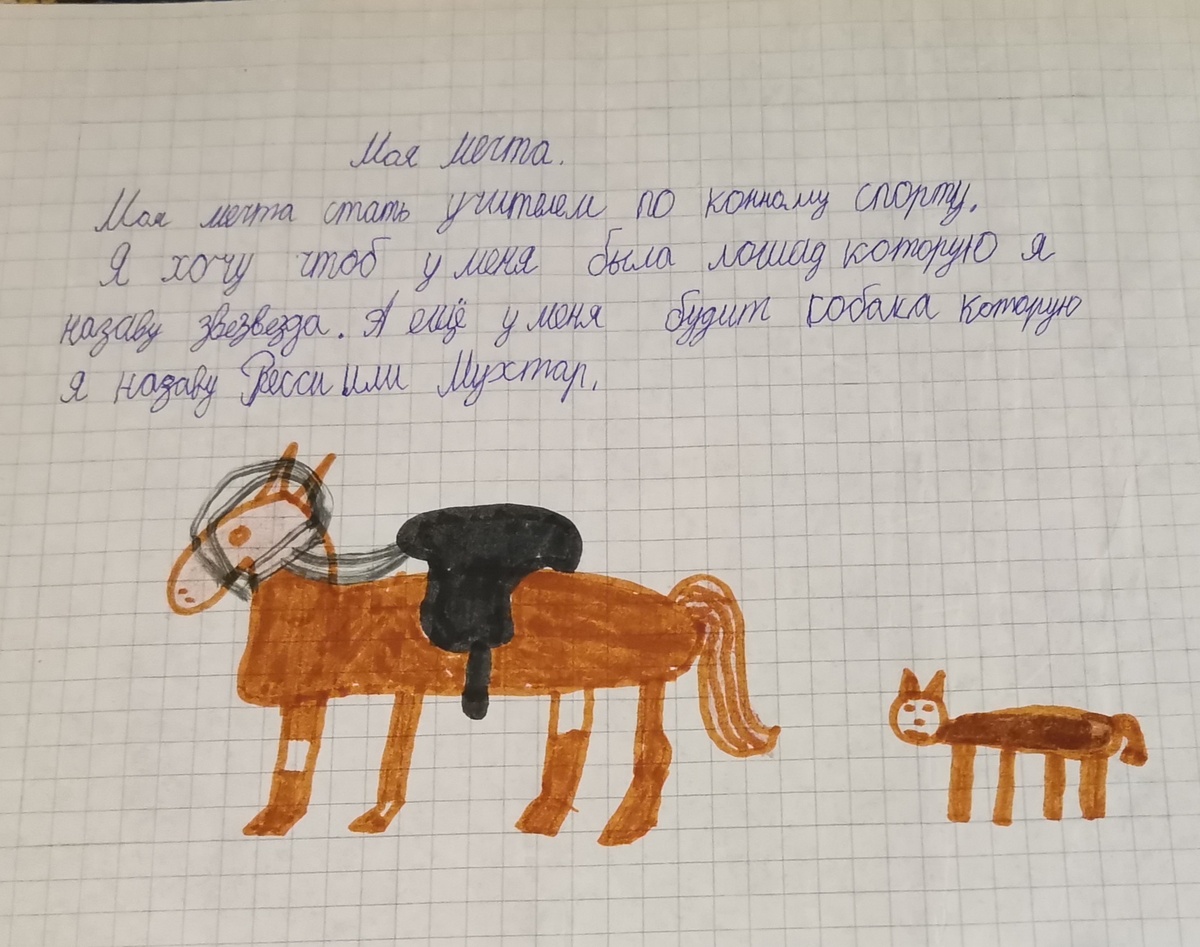 Моя мечта.
Моя мечта стать учителем по конному спорту.
Я хочу чтоб у меня была лошад которую я
назаву звезвезда. А ещё у меня будит собака которую
я назаву Ресси или Мухтар.